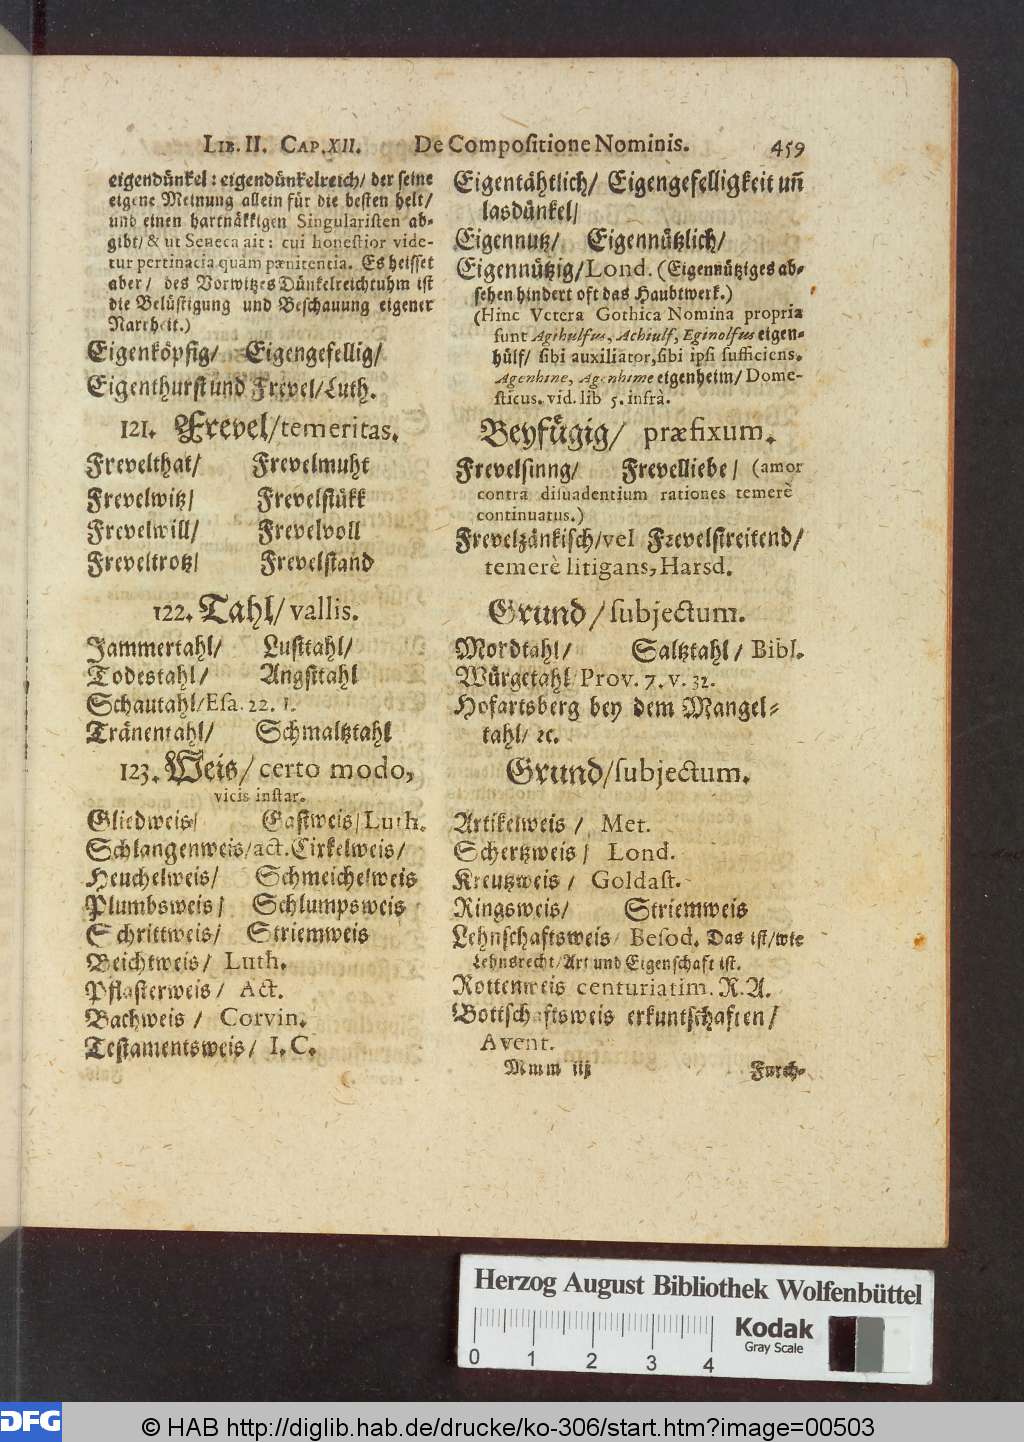 LIB. II. CAP. XII. De Compositione Nominis. 459
eigendünkel: eigendünkelreich/ der seine
eigene Meinung allein für die besten helt/
und einen hartnäkkigen Singularisten ab-
gibt/ & ut Seneca ait: cui honestior vide-
tur pertinacia quàm pœnitentia. Es heisset
aber/ des Vorwitzes Dünkelreichtuhm ist
die Belüstigung und Beschauung eigener
Narrheit.)
Eigenköpfig/ Eigengefellig/
Eigenthurst und Frevel/Luth.
121. Frevel/temeritas.
Frevelthat/ Frevelmuht
Frevelwitz/ Frevelstükk
Frevelwill/ Frevelvoll
Freveltrotz/ Frevelstand
122. Tahl/vallis.
Jammertahl/ Lusttahl/
Todestahl/ Angsttahl
Schautahl/Esa. 22. 1.
Tränentahl/ Schmaltztahl
123. Weis/certo modo,
vicis instar.
Gliedweis/ Gastweis/Luth.
Schlangenweis/act. Cirkelweis/
Heuchelweis/ Schmeichelweis
Plumbsweis/ Schlumpsweis
Schrittweis/ Striemweis
Beichtweis/ Luth.
Pflasterweis/ Act.
Bachweis/ Corvin.
Testamentsweis/ I. C.
Eigentähtlich/ Eigengefelligkeit uñ
lasdünkel/
Eigennutz/ Eigennützlich/
Eigennützig/Lond. (Eigennütziges ab-
sehen hindert oft das Haubtwerk.)
(Hinc Vetera Gothica Nomina propria
sunt Agihulfus, Achiulf, Eginolfus eigen-
hülf/ sibi auxiliator, sibi ipsi sufficiens.
Agenhine, Agenhime eigenheim/ Dome-
sticus. vid. lib 5. infrà.
Beyfügig/ præfixum.
Frevelsinng/ Frevelliebe/ (amor
contra disuadentium rationes temerè
continuatus.)
Frevelzänkisch/vel Frevelstreitend/
temerè litigans, Harsd.
Grund/subjectum.
Mordtahl/ Saltztahl/ Bibl.
Würgetahl/Prov. 7. v. 32.
Hofartsberg bey dem Mangel-
tahl/ ꝛc.
Grund/subjectum.
Artikelweis/ Met.
Schertzweis/ Lond.
Kreutzweis/ Goldast.
Ringsweis/ Striemweis
Lehnschaftsweis/ Besod. Das ist/wie
Lehnsrecht/Art und Eigenschaft ist.
Rottenweis centuriatim. R. A.
Bottschaftsweis erkuntschaften/
Avent.
Mmm iij
Furch-
Herzog August Bibliothek Wolfenbüttel
0 1 2 3 4
Kodak
Gray Scale
DFG
© HAB http://diglib.hab.de/drucke/ko-306/start.htm?image=00503